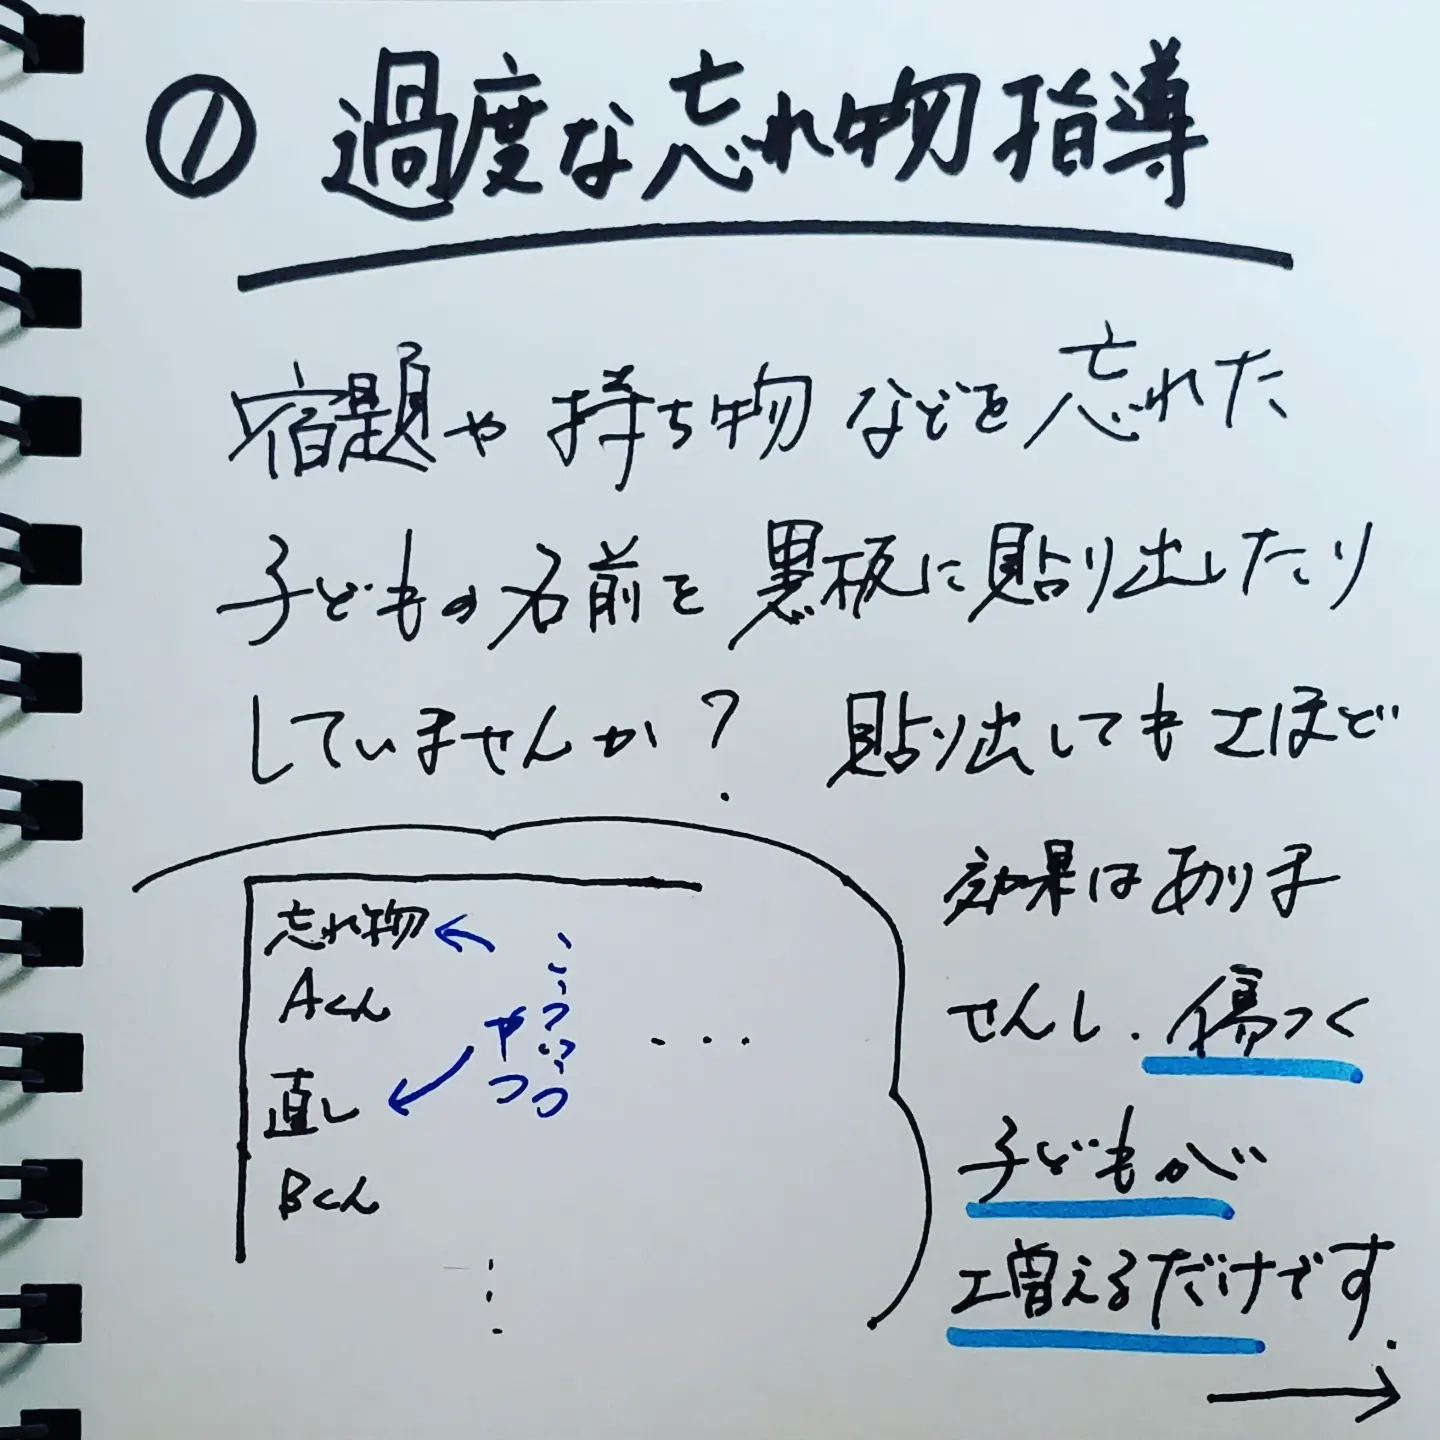 ① 過度な忘れ物指導
宿題や持ち物などを忘れた
子どもの名前を黒板に貼り出したり
していませんか? 貼り出してもさほど
効果はありま
せんし、傷つく
子どもが
増えるだけです.
忘れ物
Aくん
直し
Bくん
こういう
やつ
...
⋮